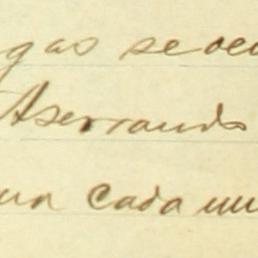 gas se de
Aserrando
una cada un